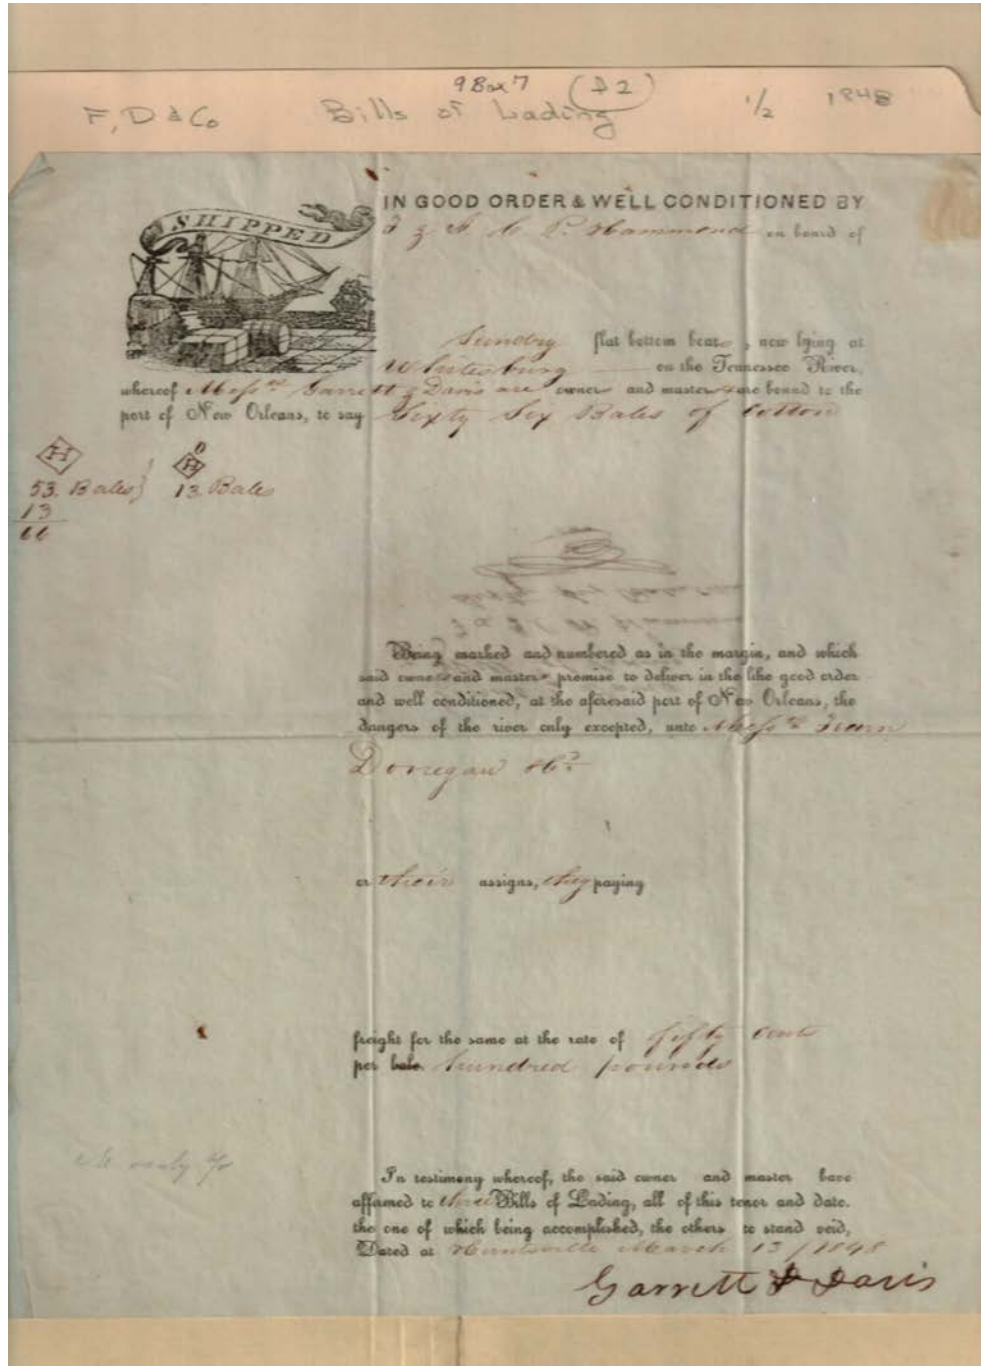 9 Box 7 (F2)
F, D & Co Bills of Lading 1/2 1848
SHIPPED
IN GOOD ORDER & WELL CONDITIONED BY
Hammond on board of
Sundry flat bottom boats, now lying at
Whitesburg on the Tennessee River,
whereof Messrs Garrett & Davis are owner and masters are bound to the
port of New Orleans, to say Sixty Six Bales of Cotton
H H
53. Bales} 13 Bales
13
66
Being marked and numbered as in the margin, and which
said owners and masters promise to deliver in the like good order
and well conditioned, at the aforesaid port of New Orleans, the
dangers of the river only excepted, unto Messrs Fearn
Donegan & Co
or their assigns, they paying
freight for the same at the rate of fifty cents
per bale hundred pounds
In testimony whereof, the said owner and master have
affirmed to three Bills of Lading, all of this tenor and date.
the one of which being accomplished, the others to stand void,
Dated at Huntsville March 13 / 1848
Garrett & Davis